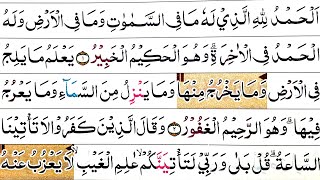 اَلْحَمْدُ لِلّٰهِ الَّذِيْ لَهٗ مَا فِى السَّمٰوٰتِ وَمَا فِى الْاَرْضِ وَلَهُ
الْحَمْدُ فِى الْاٰخِرَةِ ؕ وَهُوَ الْحَكِيْمُ الْخَبِيْرُ ۝۱ يَعْلَمُ مَا يَلِجُ
فِى الْاَرْضِ وَمَا يَخْرُجُ مِنْهَا وَمَا يَنْزِلُ مِنَ السَّمَآءِ وَمَا يَعْرُجُ
فِيْهَا ؕ وَهُوَ الرَّحِيْمُ الْغَفُوْرُ ۝۲ وَقَالَ الَّذِيْنَ كَفَرُوْا لَا تَاْتِيْنَا
السَّاعَةُ ؕ قُلْ بَلٰى وَرَبِّيْ لَتَاْتِيَنَّكُمْ ۙ عٰلِمِ الْغَيْبِ ۚ لَا يَعْزُبُ عَنْهُ